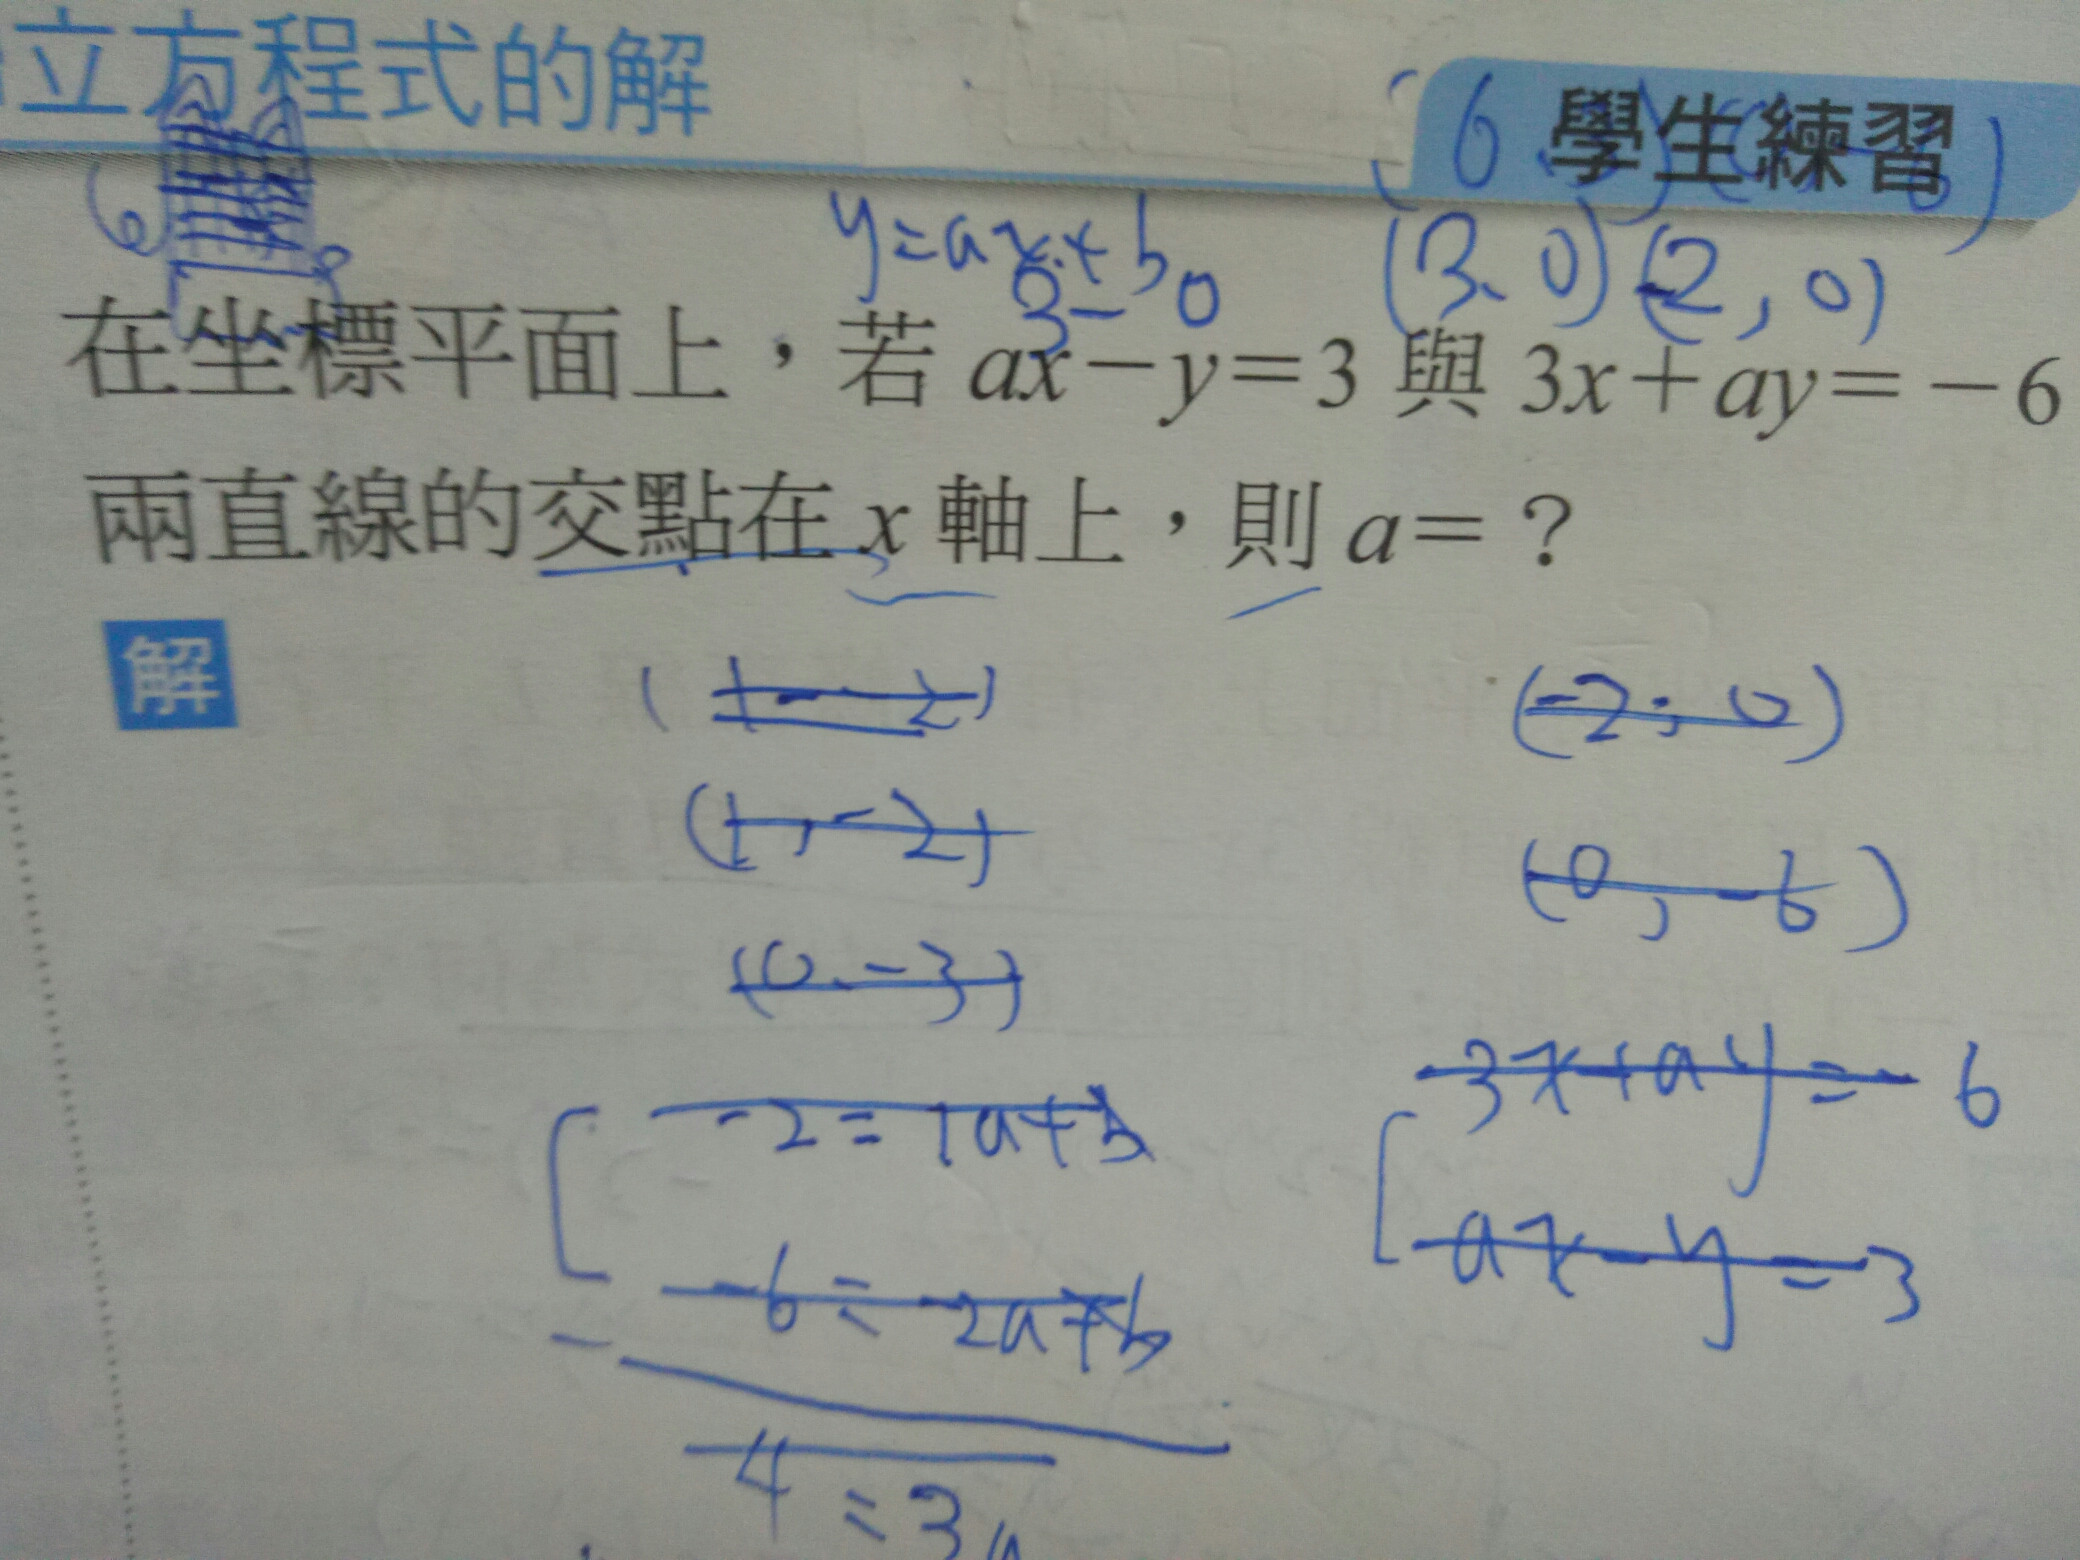 立方程式的解
學生練習
y=ax+b
(3.0) (-2,0)
在坐標平面上，若 ax－y＝3 與 3x＋ay＝－6
兩直線的交點在 x 軸上，則 a＝？
解
(1 - 2)
(-2, 0)
(1, -2)
(0, -6)
(0. -3)
3x+ay=-6
-2=1a+b
ax-y=3
-6=-2a+b
4=3a